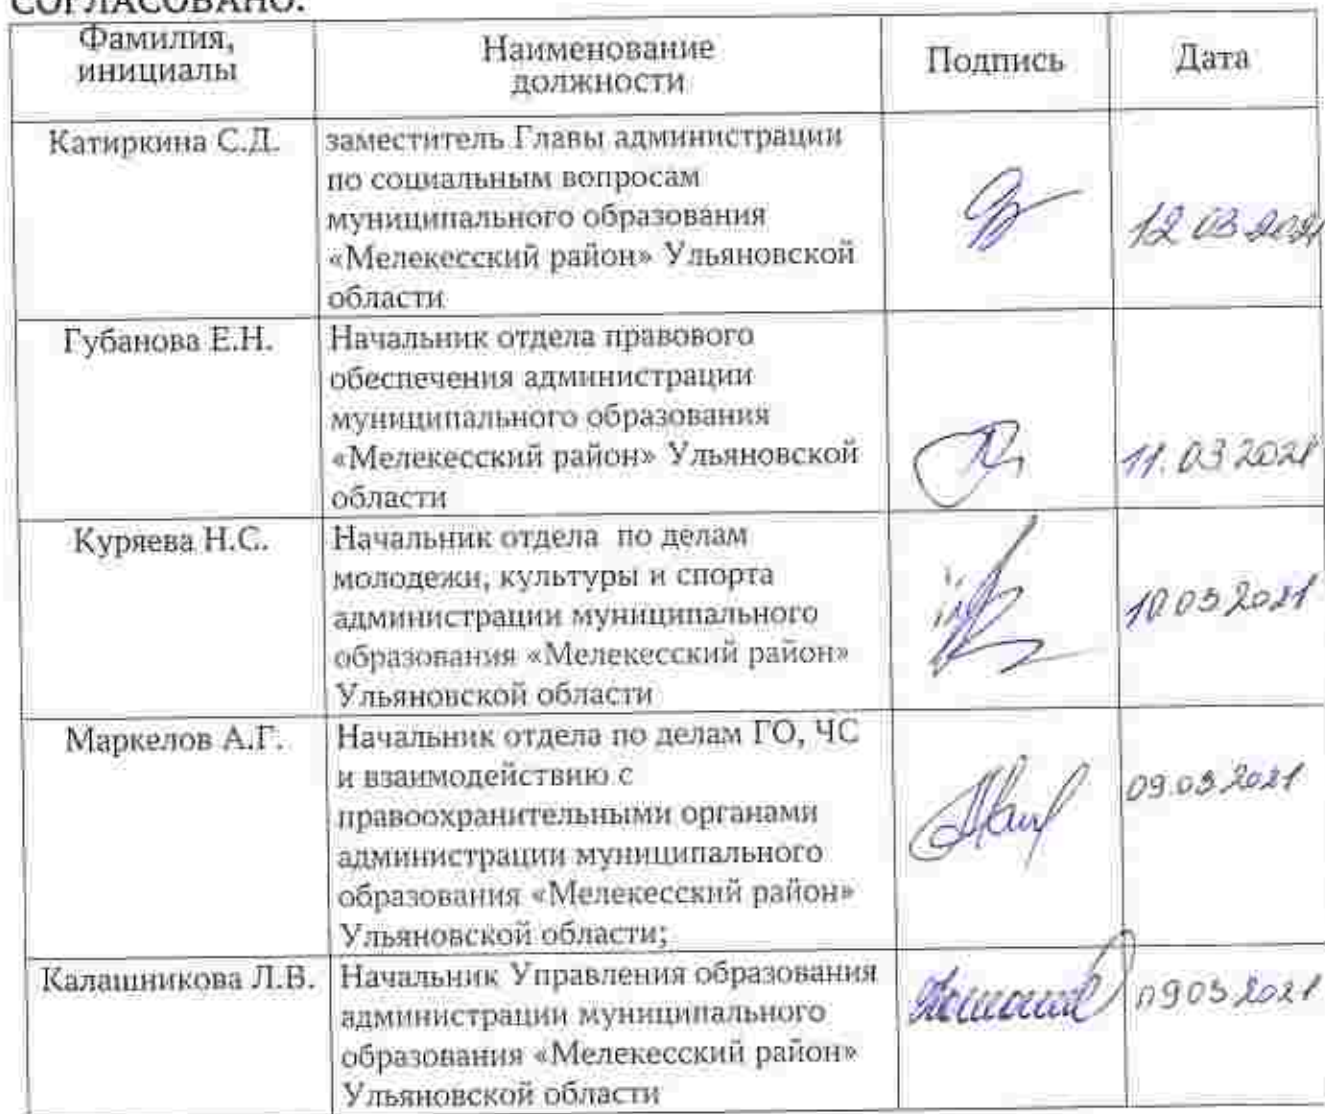 СОГЛАСОВАНО:
Фамилия,
инициалы
Наименование
должности
Подпись
Дата
Катиркина С.Д.
заместитель Главы администрации
по социальным вопросам
муниципального образования
«Мелекесский район» Ульяновской
области
12 03 2021
Губанова Е.Н.
Начальник отдела правового
обеспечения администрации
муниципального образования
«Мелекесский район» Ульяновской
области
11.03 2021
Куряева Н.С.
Начальник отдела по делам
молодежи, культуры и спорта
администрации муниципального
образования «Мелекесский район»
Ульяновской области
10 03 2021
Маркелов А.Г.
Начальник отдела по делам ГО, ЧС
и взаимодействию с
правоохранительными органами
администрации муниципального
образования «Мелекесский район»
Ульяновской области;
09.03 2021
Калашникова Л.В.
Начальник Управления образования
администрации муниципального
образования «Мелекесский район»
Ульяновской области
09 03 2021